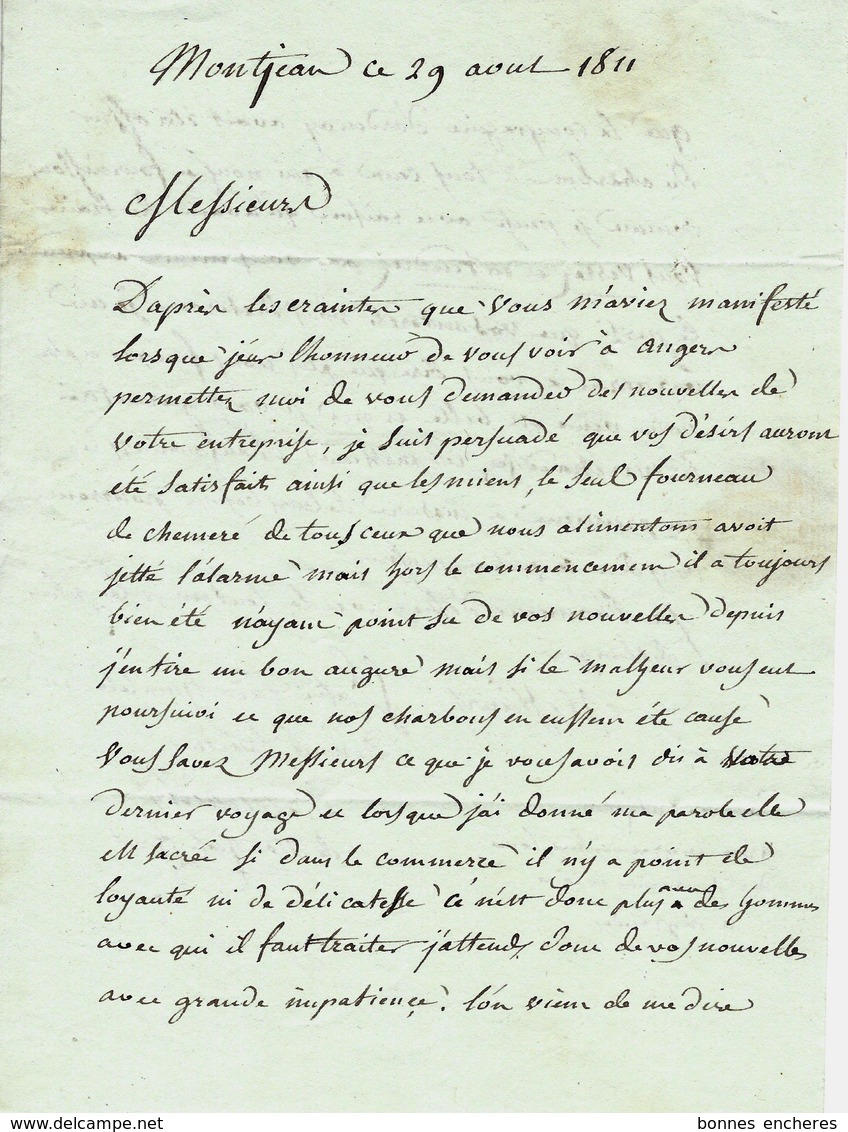 Montjean ce 29 aout 1811
Messieurs
D'après les craintes que vous m'aviez manifesté
lorsque j'eus l'honneur de vous voir à angers
permettez moi de vous demander des nouvelles de
votre entreprise, je suis persuadé que vos désirs auront
été satisfaits ainsi que les miens, le seul fourneau
de chemeré de tous ceux que nous alimentons avoit
jetté l'alarme mais hors le commencement il a toujours
bien été n'ayant point su de vos nouvelles depuis
j'en tire un bon augure mais si le malheur vous eut
poursuivi et que nos charbons en eussent été cause
Vous savez Messieurs ce que je vous avois dit à votre
dernier voyage et lorsque j'ai donné ma parole elle
est sacrée si dans le commerce il n'y a point de
loyauté ni de délicatesse ce n'est donc plus des hommes
avec qui il faut traiter j'attends donc de vos nouvelles
avec grande impatience. l'on vient de me dire
bonnes encheres